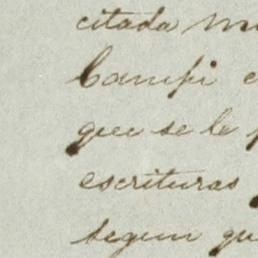 citada m
Campi e
que se le p
escrituras
segun qu